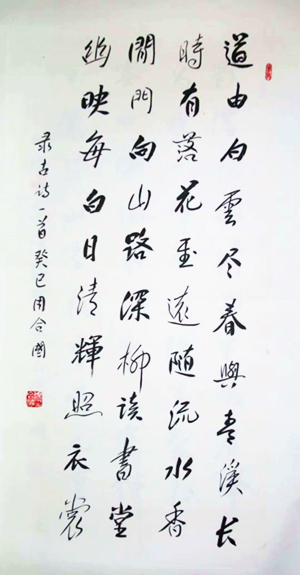 道由白雲尽春與青溪长
時有落花至遠随流水香
閒门向山路深柳读書堂
幽映每白日清輝照衣裳
录古诗一首癸巳周合國